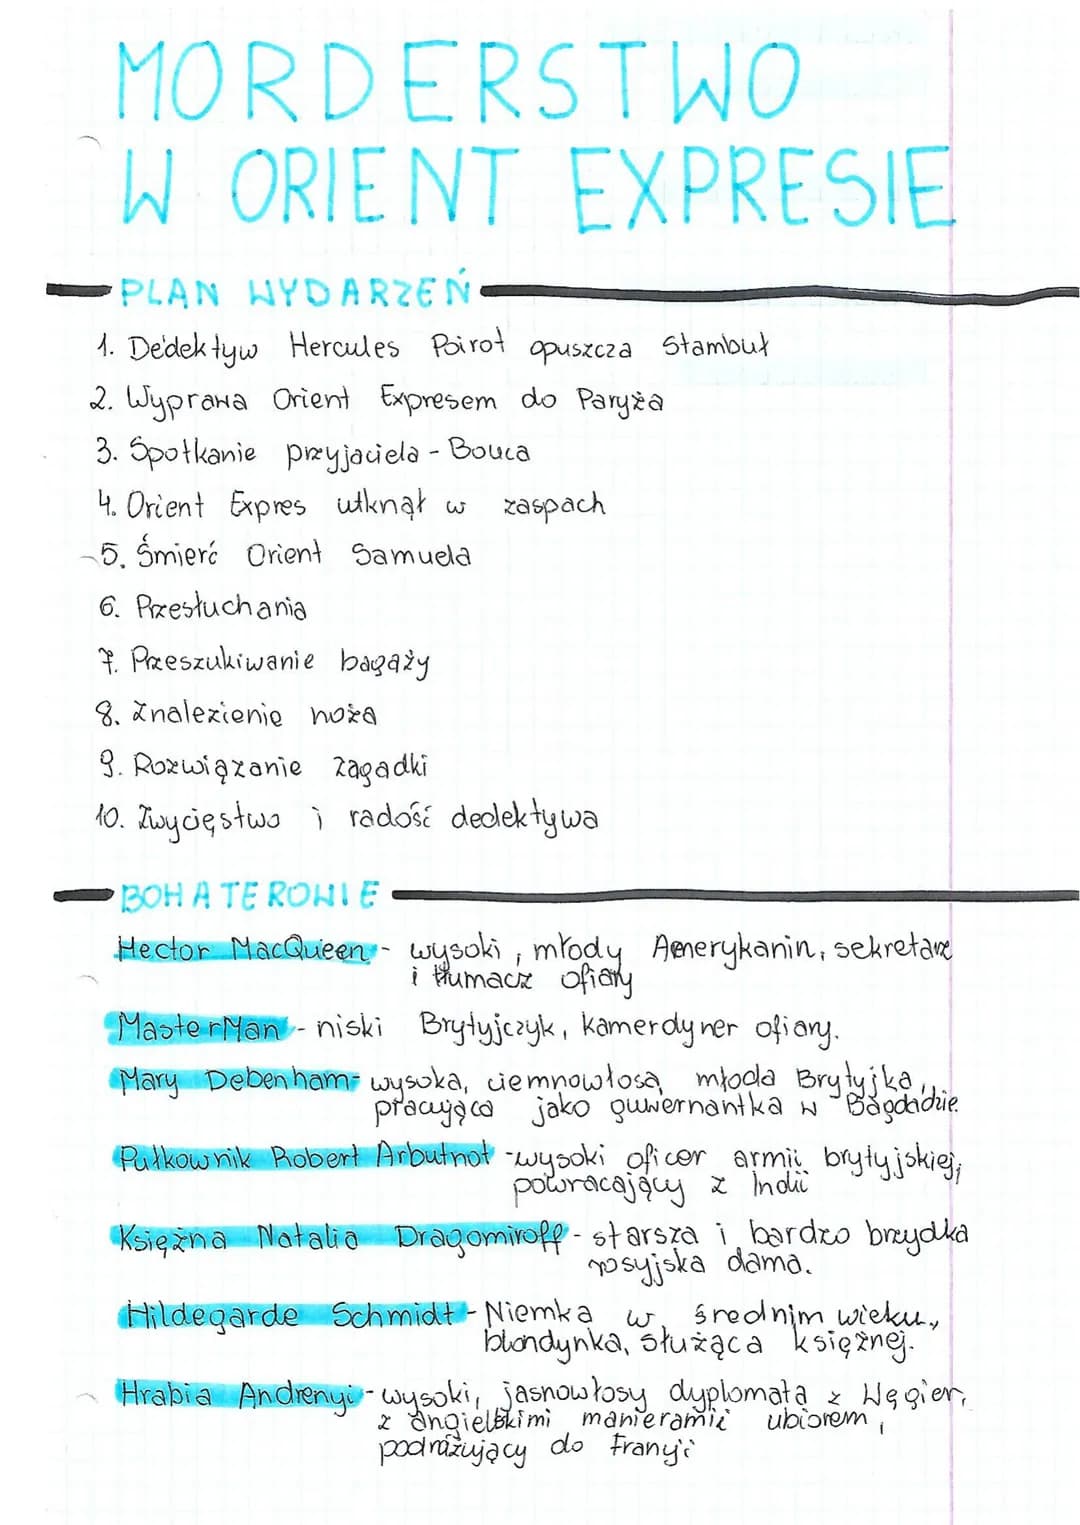 MORDERSTWO
W ORIENT EXPRESIE
PLAN WYDARZEŃ
1. Dedektyw Hercules Poirot opuszcza Stambuł
2. Wyprawa Orient Expresem do Paryża
3. Spotkanie przyjaciela - Bouca
4. Orient Expres utknął w zaspach
5. Śmierć Orient Samuela
6. Przesłuchania
7. Przeszukiwanie bagaży
8. Znalezienie noża
9. Rozwiązanie zagadki
10. Zwycięstwo i radość dedektywa
BOHATEROWIE
Hector MacQueen - wysoki, młody Amerykanin, sekretarz
i tłumacz ofiary
MasterMan - niski Brytyjczyk, kamerdyner ofiary.
Mary Debenham - wysoka, ciemnowłosa, młoda Brytyjka,
pracująca jako guwernantka w Bagdadzie.
Pułkownik Robert Arbutnot - wysoki oficer armii brytyjskiej,
powracający z Indii
Księżna Natalia Dragomiroff - starsza i bardzo brzydka
rosyjska dama.
Hildegarde Schmidt - Niemka w średnim wieku,
blondynka, służąca księżnej.
Hrabia Andrenyi - wysoki, jasnowłosy dyplomata z Węgier,
z angielskimi manierami i ubiorem,
podróżujący do Franyji